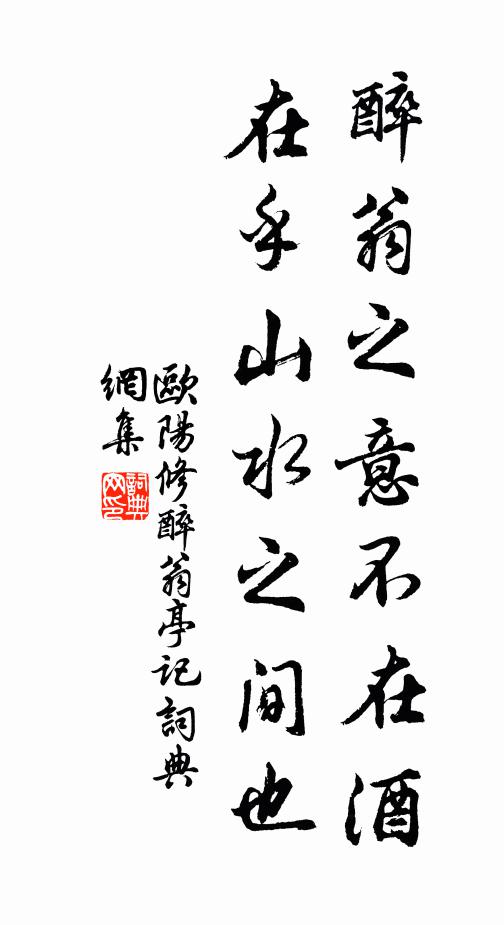 醉翁之意不在酒
在乎山水之间也
歐陽修醉翁亭記詞典
網集
詞典
网印